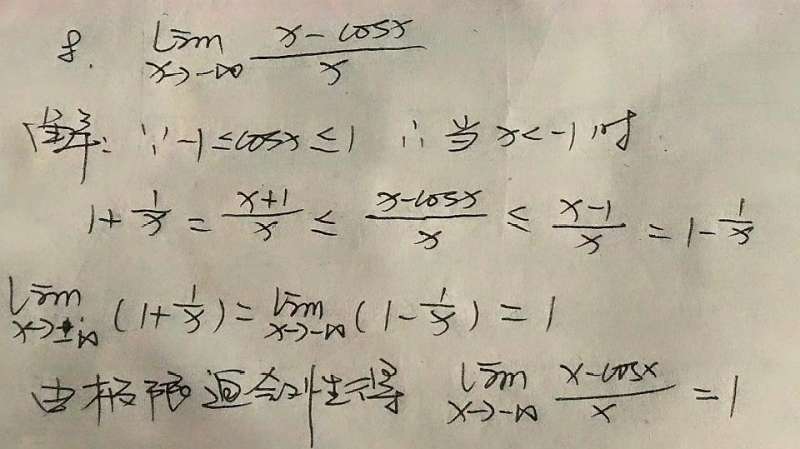 8. lim x→-∞ (x-cosx)/x
解: ∵ -1≤cosx≤1 ∴ 当 x<-1时
1+1/x = (x+1)/x ≤ (x-cosx)/x ≤ (x-1)/x = 1-1/x
lim x→-∞ (1+1/x) = lim x→-∞ (1-1/x) = 1
由极限迫敛性得 lim x→-∞ (x-cosx)/x = 1